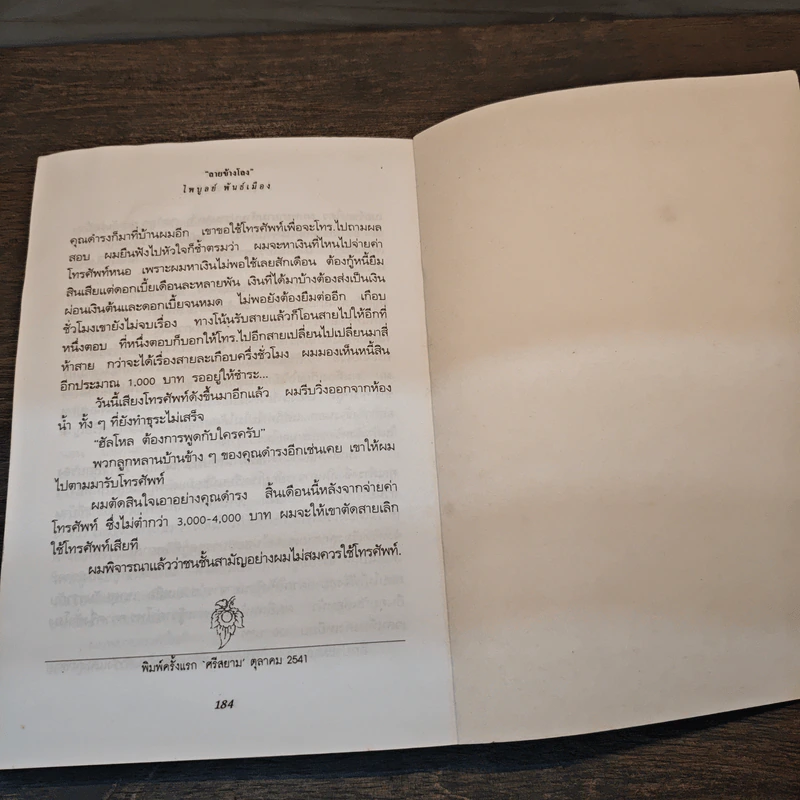 "ลายช้างโลง"
ไพบูลย์ พันธ์เมือง
คุณดำรงก็มาที่บ้านผมอีก เขาขอใช้โทรศัพท์เพื่อจะโทร.ไปถามผล
สอบ ผมยืนฟังไปหัวใจก็ช้ำตรมว่า ผมจะหาเงินที่ไหนไปจ่ายค่า
โทรศัพท์หนอ เพราะผมหาเงินไม่พอใช้เลยสักเดือน ต้องกู้หนี้ยืม
สินเสียแต่ดอกเบี้ยเดือนละหลายพัน เงินที่ได้มาบ้างต้องส่งเป็นเงิน
ผ่อนเงินต้นและดอกเบี้ยจนหมด ไม่พอยังต้องยืมต่ออีก เกือบ
ชั่วโมงเขายังไม่จบเรื่อง ทางโน้นรับสายแล้วก็โอนสายไปให้อีกที่
หนึ่งตอบ ที่หนึ่งตอบก็บอกให้โทร.ไปอีกสายเปลี่ยนไปเปลี่ยนมาสี่
ห้าสาย กว่าจะได้เรื่องสายละเกือบครึ่งชั่วโมง ผมมองเห็นหนี้สิน
อีกประมาณ 1,000 บาท รออยู่ให้ชำระ...
วันนี้เสียงโทรศัพท์ดังขึ้นมาอีกแล้ว ผมรีบวิ่งออกจากห้อง
น้ำ ทั้ง ๆ ที่ยังทำธุระไม่เสร็จ
"ฮัลโหล ต้องการพูดกับใครครับ"
พวกลูกหลานบ้านข้าง ๆ ของคุณดำรงอีกเช่นเคย เขาให้ผม
ไปตามมารับโทรศัพท์
ผมตัดสินใจเอาอย่างคุณดำรง สิ้นเดือนนี้หลังจากจ่ายค่า
โทรศัพท์ ซึ่งไม่ต่ำกว่า 3,000-4,000 บาท ผมจะให้เขาตัดสายเลิก
ใช้โทรศัพท์เสียที
ผมพิจารณาแล้วว่าชนชั้นสามัญอย่างผมไม่สมควรใช้โทรศัพท์.
พิมพ์ครั้งแรก 'ศรีสยาม' ตุลาคม 2541
184